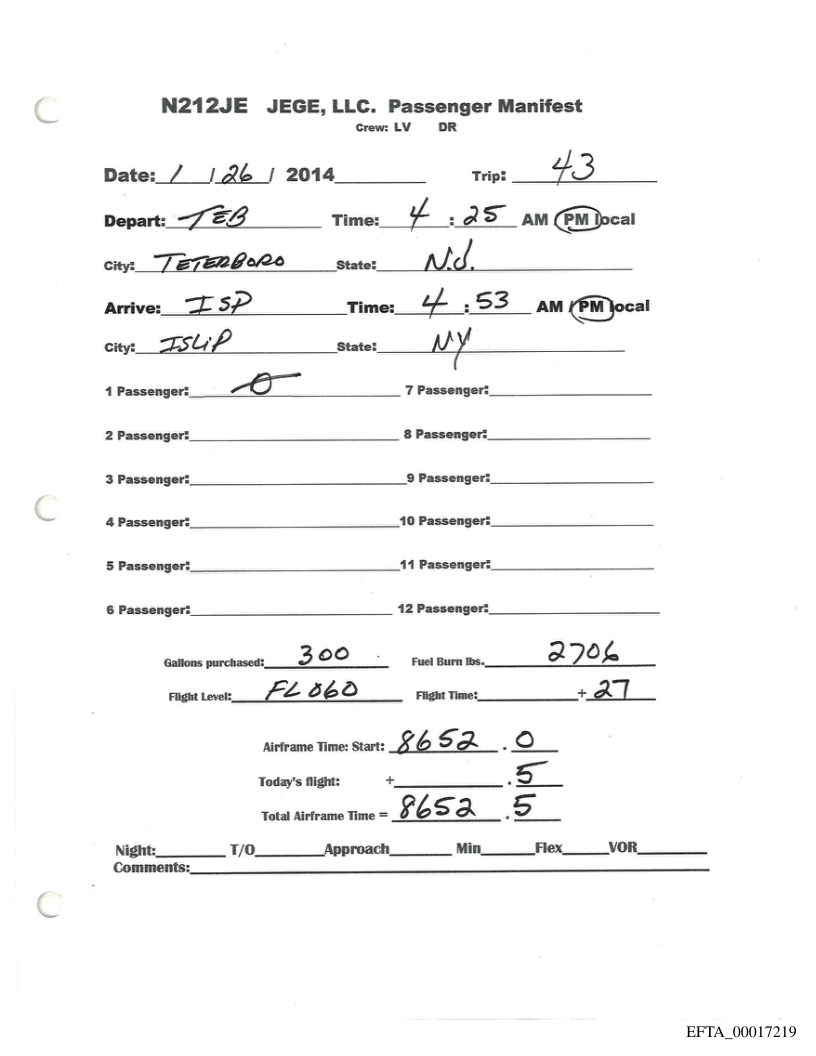 N212JE JEGE, LLC. Passenger Manifest
Crew: LV DR
Date: 1 / 26 / 2014 Trip: 43
Depart: TEB Time: 4 : 25 AM PM local
City: TETERBORO State: N.J.
Arrive: ISP Time: 4 : 53 AM / PM local
City: ISLIP State: NY
1 Passenger: 0 7 Passenger:
2 Passenger: 8 Passenger:
3 Passenger: 9 Passenger:
4 Passenger: 10 Passenger:
5 Passenger: 11 Passenger:
6 Passenger: 12 Passenger:
Gallons purchased: 300 Fuel Burn lbs. 2706
Flight Level: FL 060 Flight Time: + 27
Airframe Time: Start: 8652 . 0
Today's flight: + . 5
Total Airframe Time = 8652 . 5
Night: T/O Approach Min Flex VOR
Comments:
EFTA_00017219